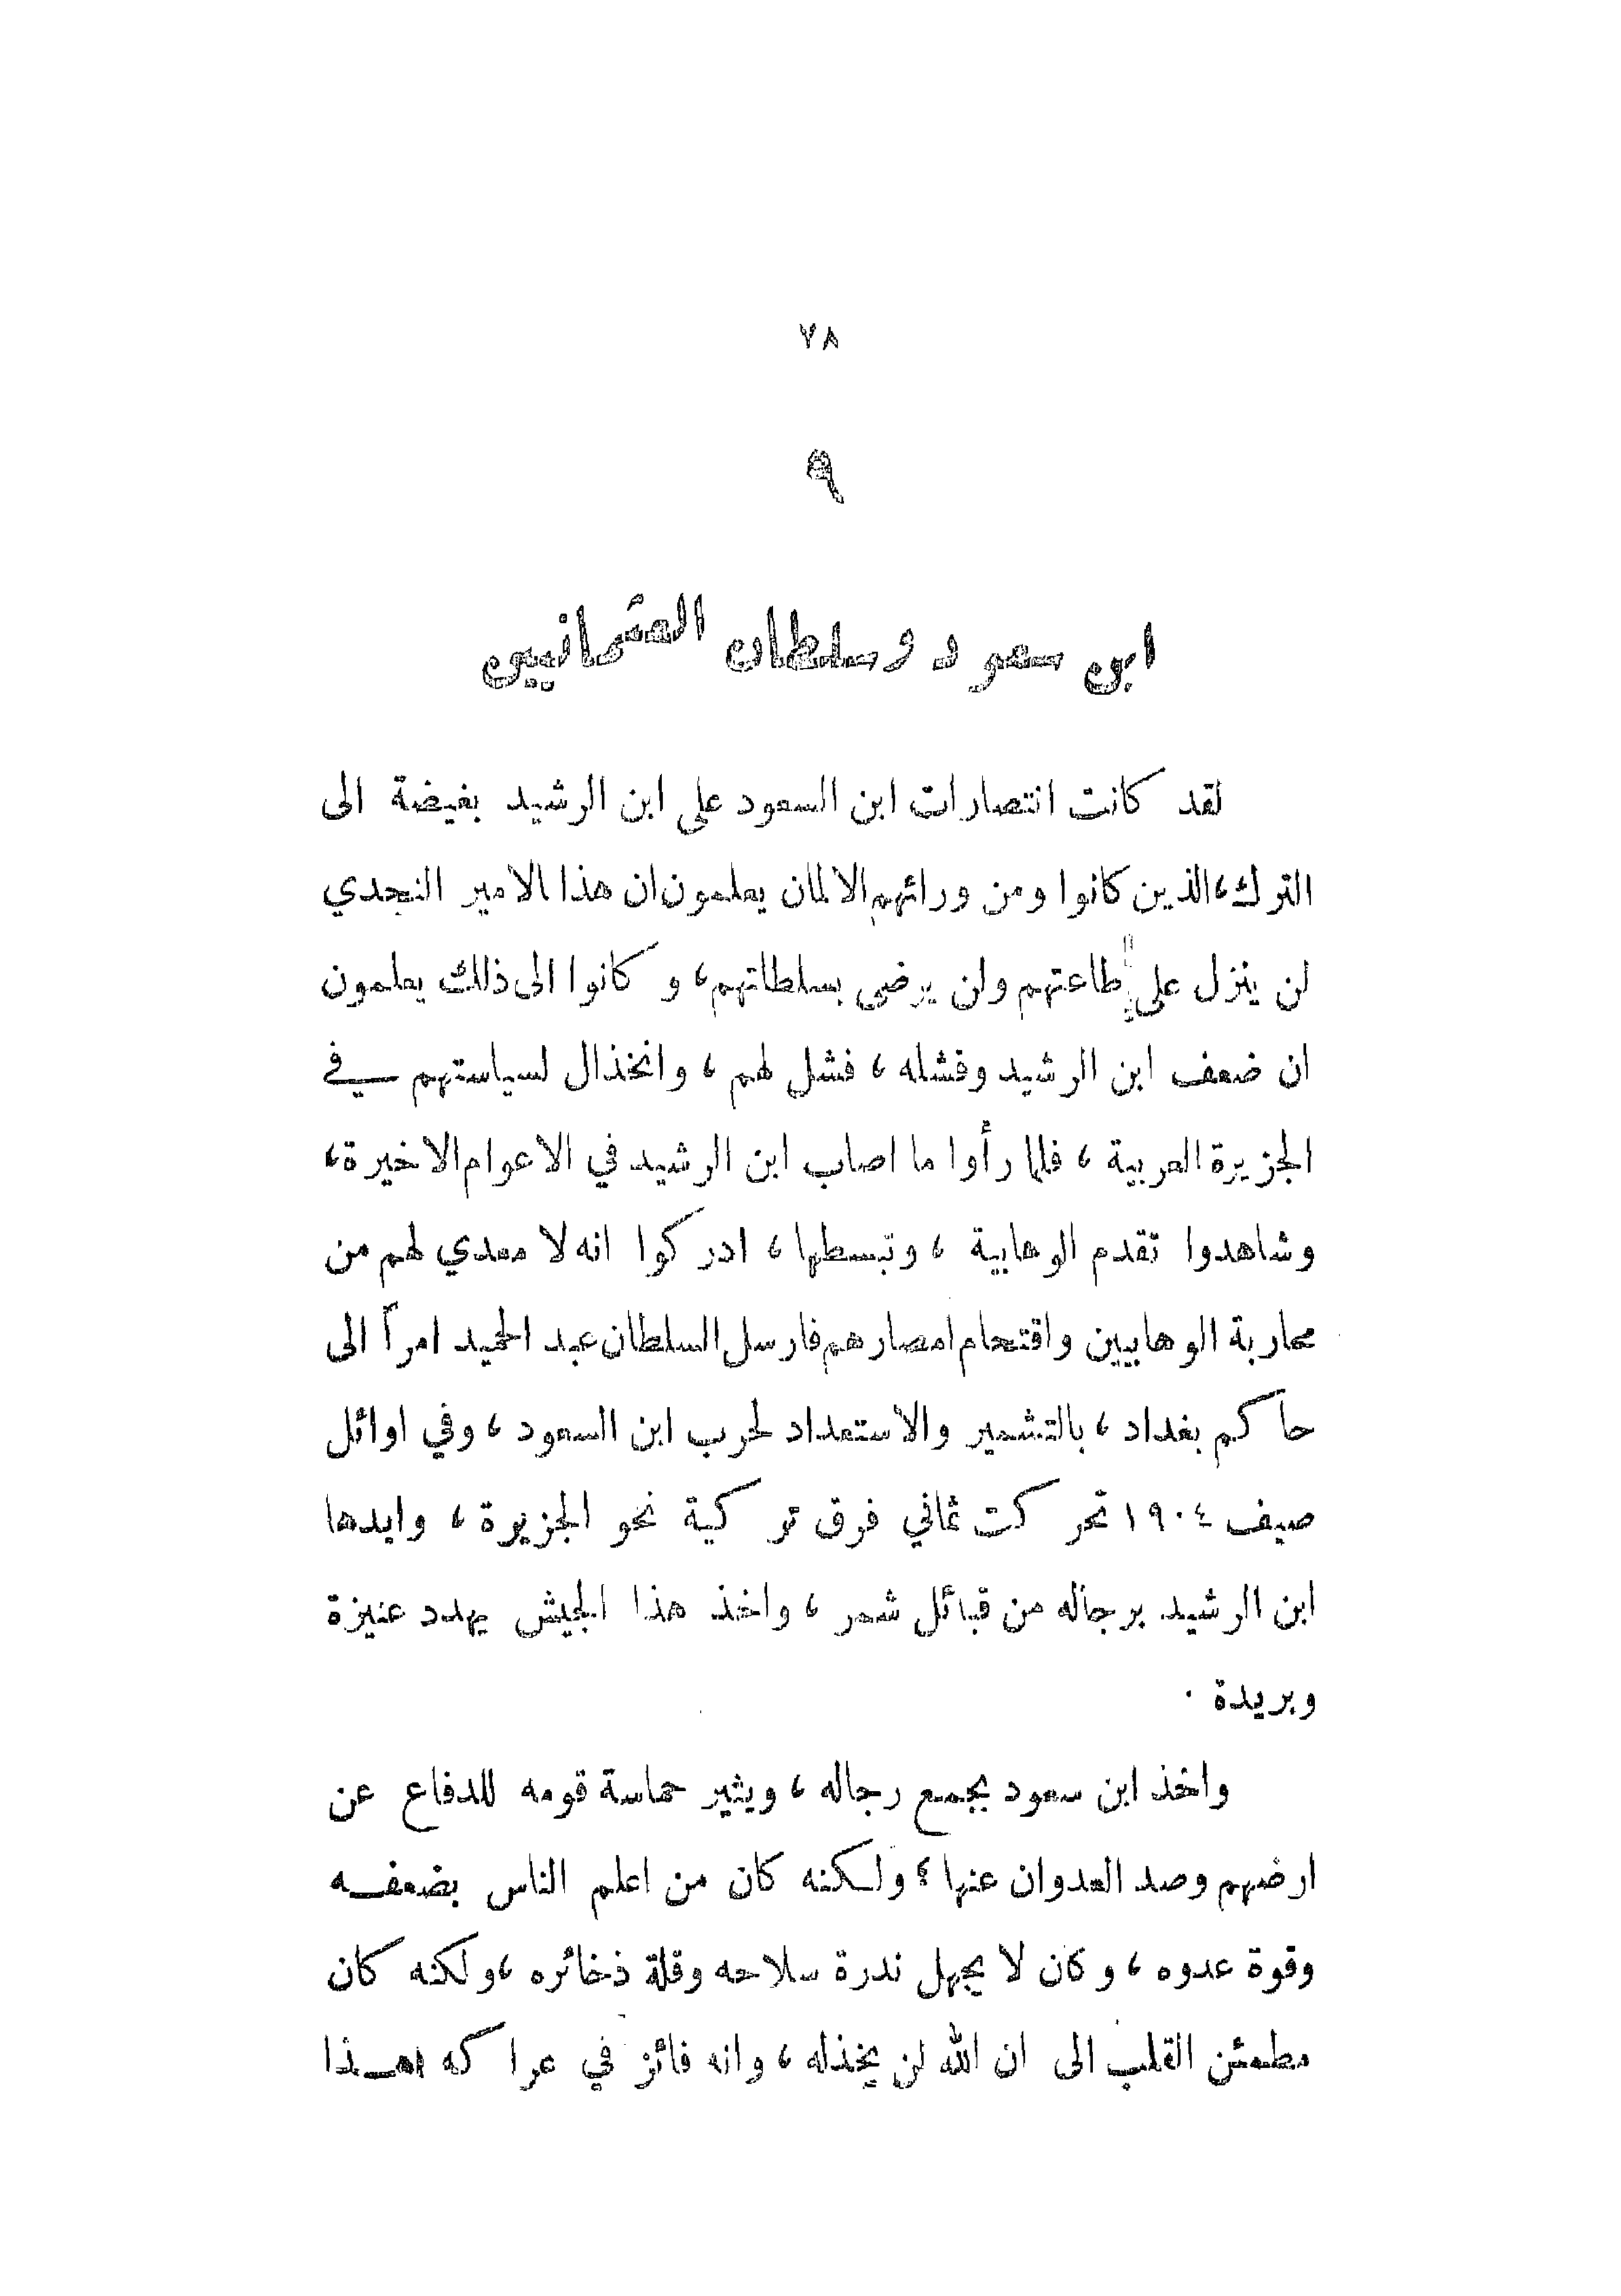 ٧٨
٩
ابن سعود وسلطان العثمانيين
لقد كانت انتصارات ابن السعود على ابن الرشيد بغيضة الى
الترك، الذين كانوا ومن ورائهم الالمان يعلمون ان هذا الامير النجدي
لن ينزل على طاعتهم ولن يرضى بسلطاتهم، وكانوا الى ذلك يعلمون
ان ضعف ابن الرشيد وفشله، فشل لهم، وانخذال لسياستهم في
الجزيرة العربية، فلما رأوا ما اصاب ابن الرشيد في الاعوام الاخيرة،
وشاهدوا تقدم الوهابية، وتبسطها، ادركوا انه لا معدي لهم من
محاربة الوهابيين واقتحام امصارهم فارسل السلطان عبد الحميد امراً الى
حاكم بغداد، بالتشمير والاستعداد لحرب ابن السعود، وفي اوائل
صيف ١٩٠٤ تحركت ثماني فرق تركية نحو الجزيرة، وايدها
ابن الرشيد برجاله من قبائل شمر، واخذ هذا الجيش يهدد عنيزة
وبريدة .
واخذ ابن سعود يجمع رجاله، ويثير حماسة قومه للدفاع عن
ارضهم وصد العدوان عنها؛ ولكنه كان من اعلم الناس بضعفه
وقوة عدوه، وكان لا يجهل ندرة سلاحه وقلة ذخائره، ولكنه كان
مطمئن القلب الى ان الله لن يخذله، وانه فائز في عراكه هذا